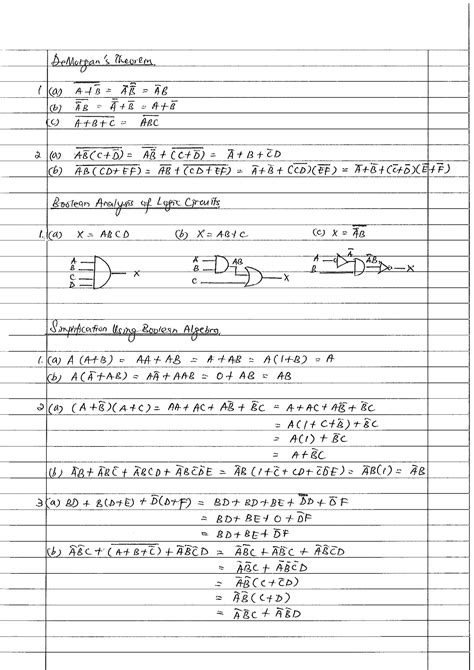 DeMorgan's Theorem.
1 (a) \overline{A+\overline{B}} = \overline{A}\overline{\overline{B}} = \overline{A}B
(b) \overline{\overline{A}B} = \overline{\overline{A}}+\overline{B} = A+\overline{B}
(c) \overline{A+B+C} = \overline{A}\overline{B}\overline{C}
2 (a) \overline{A\overline{B}(C+\overline{D})} = \overline{A\overline{B}} + \overline{(C+\overline{D})} = \overline{A}+B+\overline{C}D
(b) \overline{AB(CD+\overline{E}F)} = \overline{AB} + \overline{(CD+\overline{E}F)} = \overline{A}+\overline{B}+(\overline{CD})(\overline{\overline{E}F}) = \overline{A}+\overline{B}+(\overline{C}+\overline{D})(E+\overline{F})
Boolean Analysis of Logic Circuits
1. (a) X = ABCD (b) X = AB+C (c) X = \overline{\overline{A}B}
A B C D X A B C AB X A B \overline{A} \overline{A}B X
Simplification Using Boolean Algebra.
1. (a) A(A+B) = AA + AB = A + AB = A(1+B) = A
(b) A(\overline{A}+AB) = A\overline{A} + AAB = 0 + AB = AB
2 (a) (A+\overline{B})(A+C) = AA+AC+A\overline{B}+\overline{B}C = A+AC+A\overline{B}+\overline{B}C
= A(1+C+\overline{B})+\overline{B}C
= A(1) + \overline{B}C
= A+\overline{B}C
(b) \overline{A}B+\overline{A}B\overline{C}+\overline{A}BCD+\overline{A}B\overline{C}\overline{D}E = \overline{A}B(1+\overline{C}+CD+\overline{C}\overline{D}E) = \overline{A}B(1) = \overline{A}B
3 (a) BD + B(D+E) + \overline{D}(D+F) = BD + BD+BE + \overline{D}D+\overline{D}F
= BD + BE + 0 + \overline{D}F
= BD+BE+\overline{D}F
(b) \overline{A}\overline{B}C + \overline{(A+B+\overline{C})} + \overline{A}\overline{B}\overline{C}D = \overline{A}\overline{B}C + \overline{A}\overline{B}C + \overline{A}\overline{B}\overline{C}D
= \overline{A}\overline{B}C + \overline{A}\overline{B}\overline{C}D
= \overline{A}\overline{B}(C+\overline{C}D)
= \overline{A}\overline{B}(C+D)
= \overline{A}\overline{B}C + \overline{A}\overline{B}D